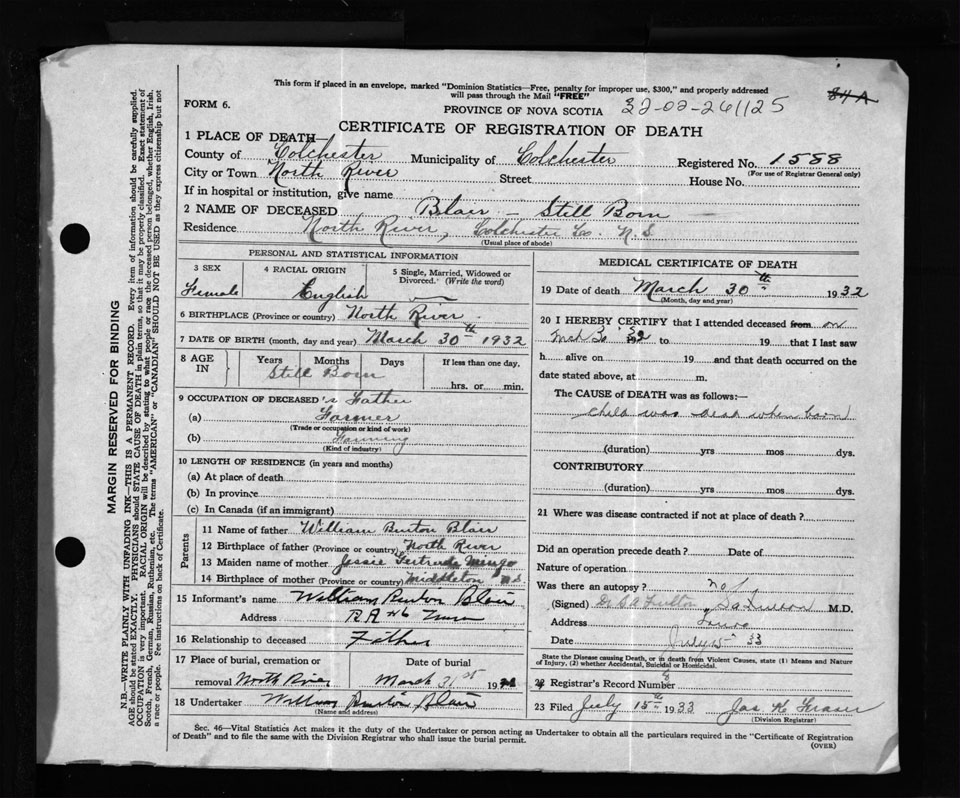 This form if placed in an envelope, marked "Dominion Statistics—Free, penalty for improper use, $300," and properly addressed
will pass through the Mail "FREE"
84 A
FORM 6.
PROVINCE OF NOVA SCOTIA 32-02-261125
CERTIFICATE OF REGISTRATION OF DEATH
1 PLACE OF DEATH—
County of Colchester Municipality of Colchester Registered No. 1588
(For use of Registrar General only)
City or Town North River Street House No.
If in hospital or institution, give name
2 NAME OF DECEASED Blair - Still Born
Residence North River, Colchester Co. N.S
(Usual place of abode)
PERSONAL AND STATISTICAL INFORMATION
3 SEX 4 RACIAL ORIGIN 5 Single, Married, Widowed or
Divorced. (Write the word)
Female English
6 BIRTHPLACE (Province or country) North River
7 DATE OF BIRTH (month, day and year) March 30th 1932
8 AGE IN Years Months Days If less than one day,
Still Born hrs. or min.
9 OCCUPATION OF DECEASED's Father
(a) Farmer
(Trade or occupation or kind of work)
(b) Farming
(Kind of industry)
10 LENGTH OF RESIDENCE (in years and months)
(a) At place of death
(b) In province
(c) In Canada (if an immigrant)
Parents
11 Name of father William Burton Blair
12 Birthplace of father (Province or country) North River
13 Maiden name of mother Jessie Gertrude
14 Birthplace of mother (Province or country) Middleton N.S
15 Informant's name William Burton Blair
Address RR No 6 Truro
16 Relationship to deceased Father
17 Place of burial, cremation or Date of burial
removal North River March 31st 19
18 Undertaker William Burton Blair
(Name and address)
MEDICAL CERTIFICATE OF DEATH
19 Date of death March 30th 1932
(Month, day and year)
20 I HEREBY CERTIFY that I attended deceased from on
Mch 30 32 to 19 that I last saw
h alive on 19 and that death occurred on the
date stated above, at m.
The CAUSE of DEATH was as follows:—
Child was dead when born
(duration) yrs mos dys.
CONTRIBUTORY
(duration) yrs mos dys.
21 Where was disease contracted if not at place of death?
Did an operation precede death? Date of
Nature of operation
Was there an autopsy? no
(Signed) M.D.
Address Truro
Date July 15 33
State the Disease causing Death, or in death from Violent Causes, state (1) Means and Nature
of Injury, (2) whether Accidental, Suicidal or Homicidal.
Registrar's Record Number
23 Filed July 15th 1933 Jas K Fraser
(Division Registrar)
Sec. 46—Vital Statistics Act makes it the duty of the Undertaker or person acting as Undertaker to obtain all the particulars required in the "Certificate of Registration
of Death" and to file the same with the Division Registrar who shall issue the burial permit.
(OVER)
MARGIN RESERVED FOR BINDING
N.B.—WRITE PLAINLY WITH UNFADING INK—THIS IS A PERMANENT RECORD. Every item of information should be carefully supplied.
AGE should be stated EXACTLY. PHYSICIANS should STATE CAUSE OF DEATH in plain terms, so that it may be properly classified. Exact statement of
OCCUPATION is very important. RACIAL ORIGIN will be described by stating to what people or race the deceased person belonged, whether English, Irish,
Scotch, French, German, Russian, Ruthenian, etc. The terms "AMERICAN" or "CANADIAN" SHOULD NOT BE USED as they express citizenship but not
a race or people. See instructions on back of Certificate.